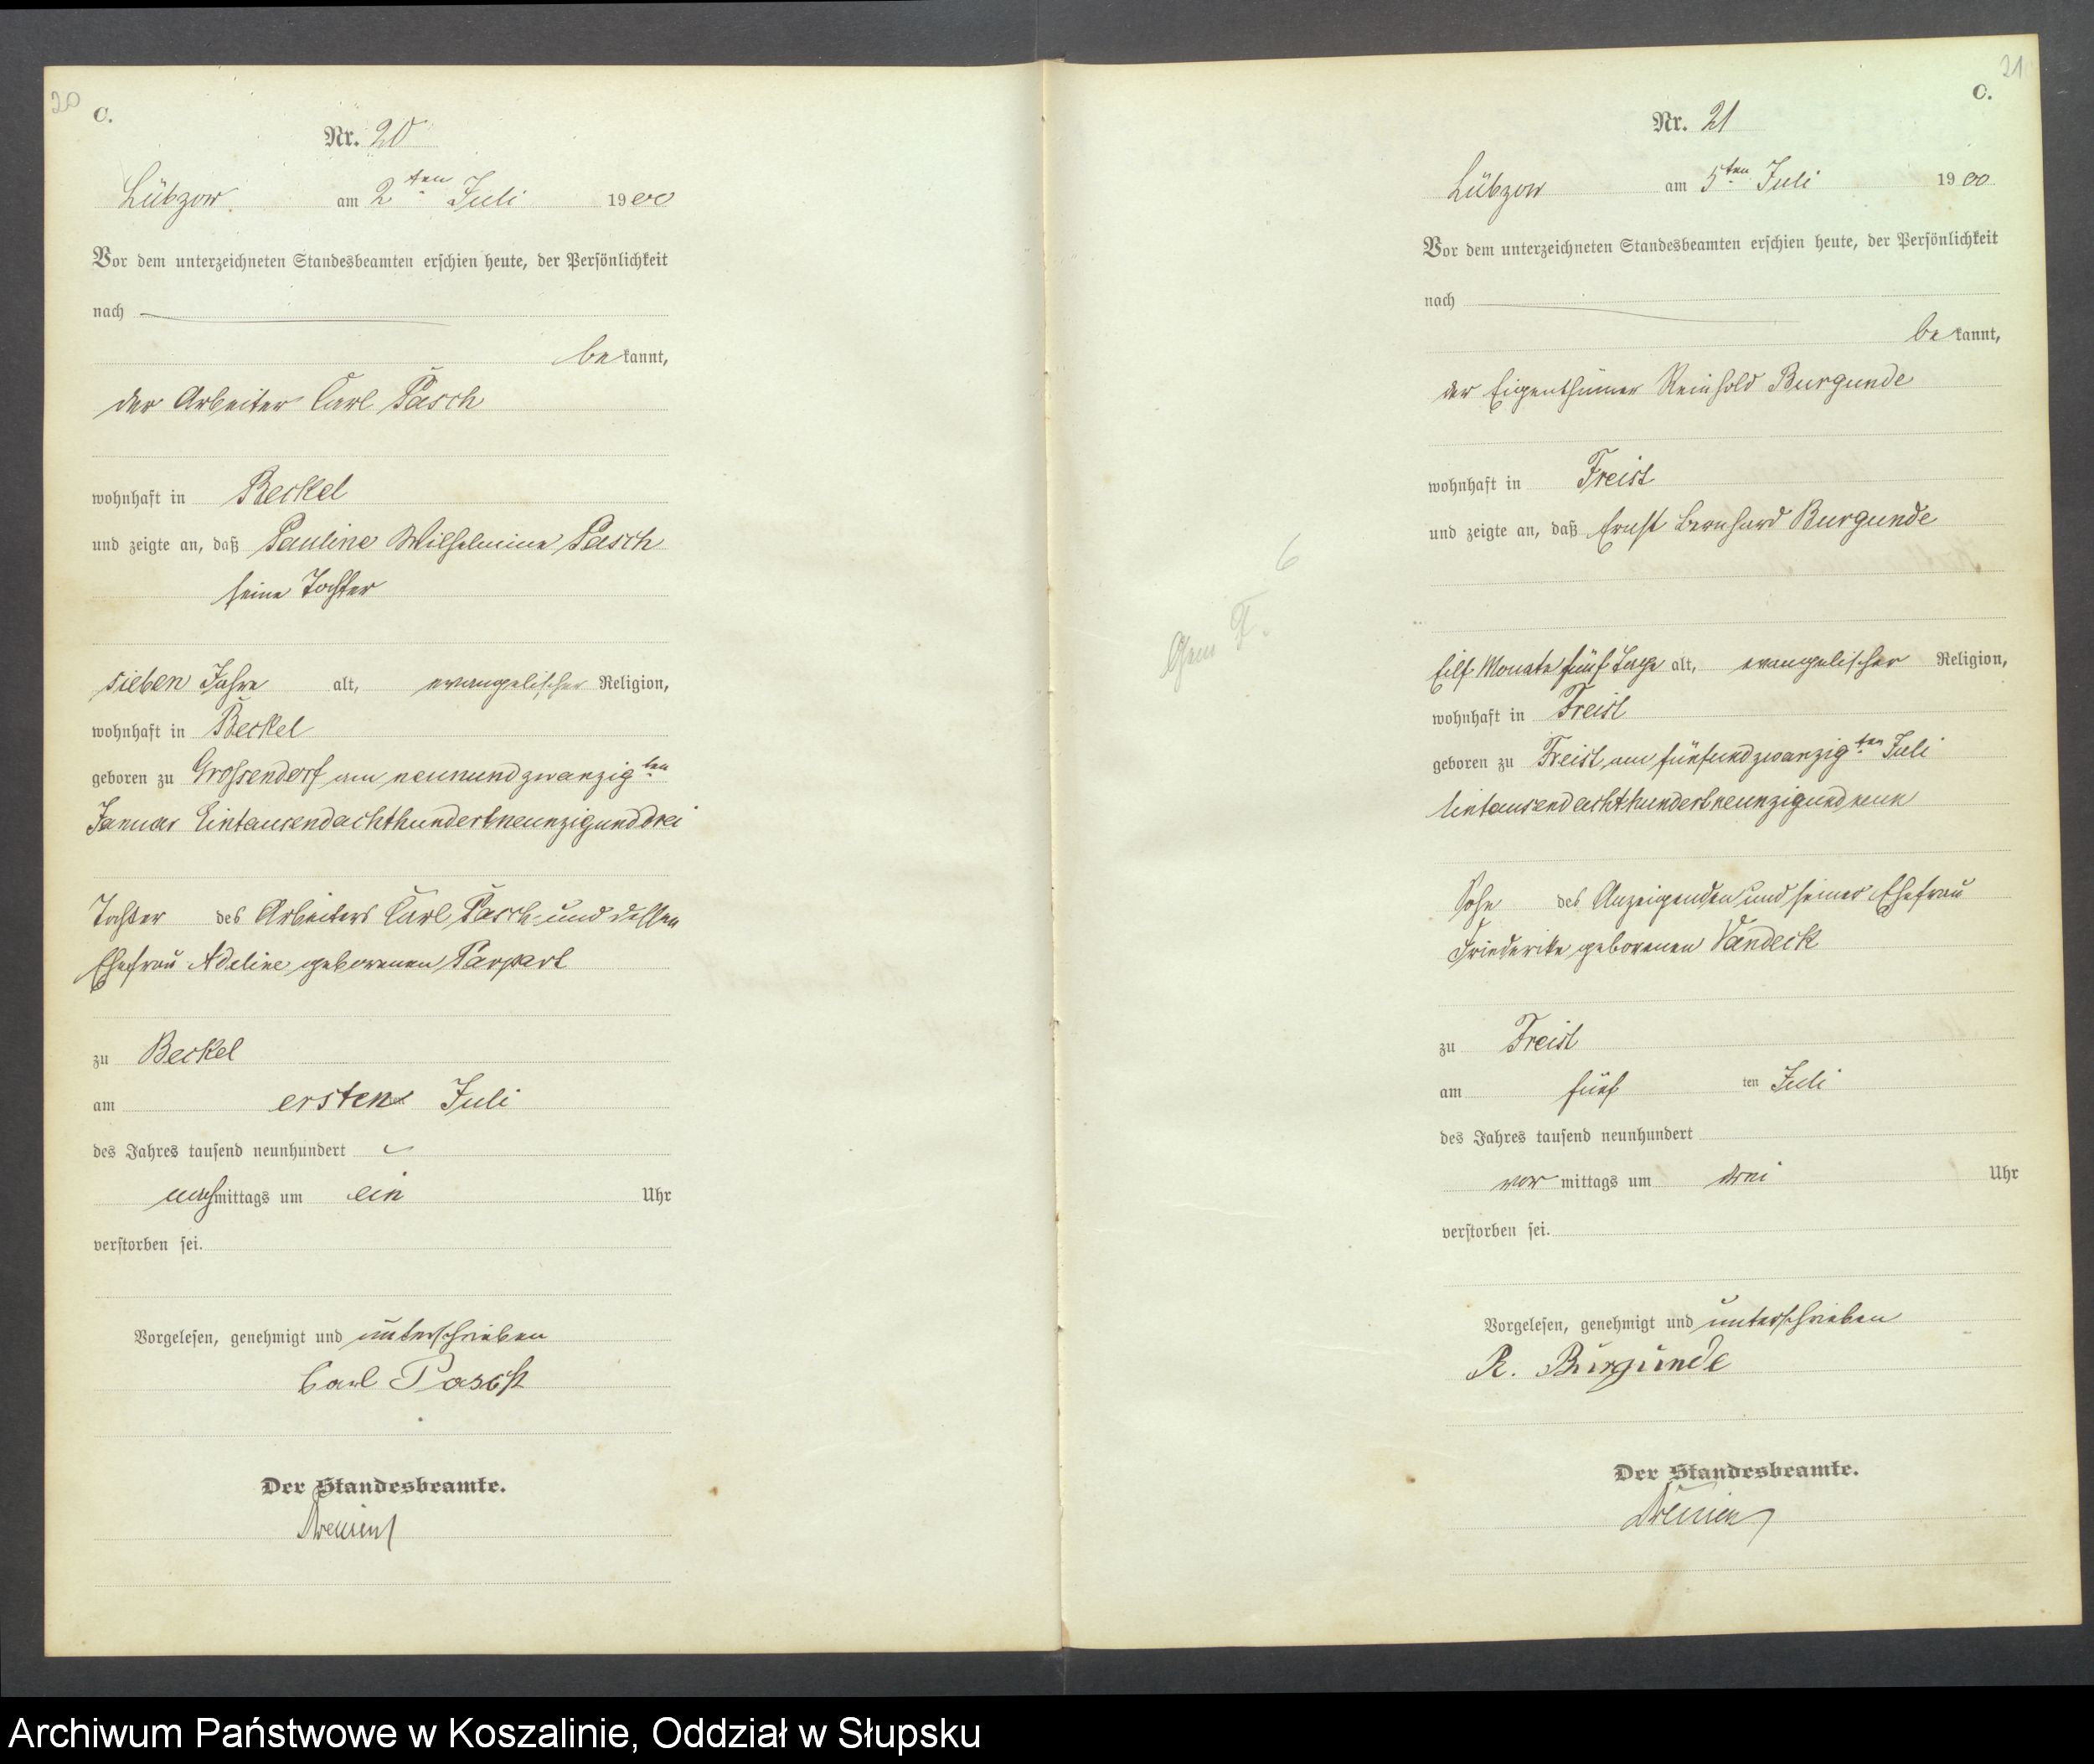 20
C.
Nr. 20
Lübzow am 2ten Juli 1900
Vor dem unterzeichneten Standesbeamten erschien heute, der Persönlichkeit
nach
be kannt,
der Arbeiter Carl Pasch
wohnhaft in Beckel
und zeigte an, daß Pauline Wilhelmine Pasch
seine Tochter
sieben Jahre alt, evangelischer Religion,
wohnhaft in Beckel
geboren zu Grossendorf am neunundzwanzigten
Januar Eintausendachthundertneunzigunddrei
Tochter des Arbeiters Carl Pasch und dessen
Ehefrau Adeline geborenen Parpart
zu Beckel
am ersten Juli
des Jahres tausend neunhundert
nachmittags um ein Uhr
verstorben sei.
Vorgelesen, genehmigt und unterschrieben
Carl Pasch
Der Standesbeamte.
21
C.
Nr. 21
Lübzow am 5ten Juli 1900
Vor dem unterzeichneten Standesbeamten erschien heute, der Persönlichkeit
nach
be kannt,
der Eigenthümer Reinhold Burgunde
wohnhaft in Freist
und zeigte an, daß Ernst Bernhard Burgunde
6
F.
Eilf Monate fünf Tage alt, evangelischer Religion,
wohnhaft in Freist
geboren zu Freist am fünfundzwanzigten Juli
Eintausendachthundertneunzigundneun
Sohn des Anzeigenden und seiner Ehefrau
Friederike geborenen Vandeck
zu Freist
am fünf ten Juli
des Jahres tausend neunhundert
vor mittags um drei Uhr
verstorben sei.
Vorgelesen, genehmigt und unterschrieben
R. Burgunde
Der Standesbeamte.
Archiwum Państwowe w Koszalinie, Oddział w Słupsku